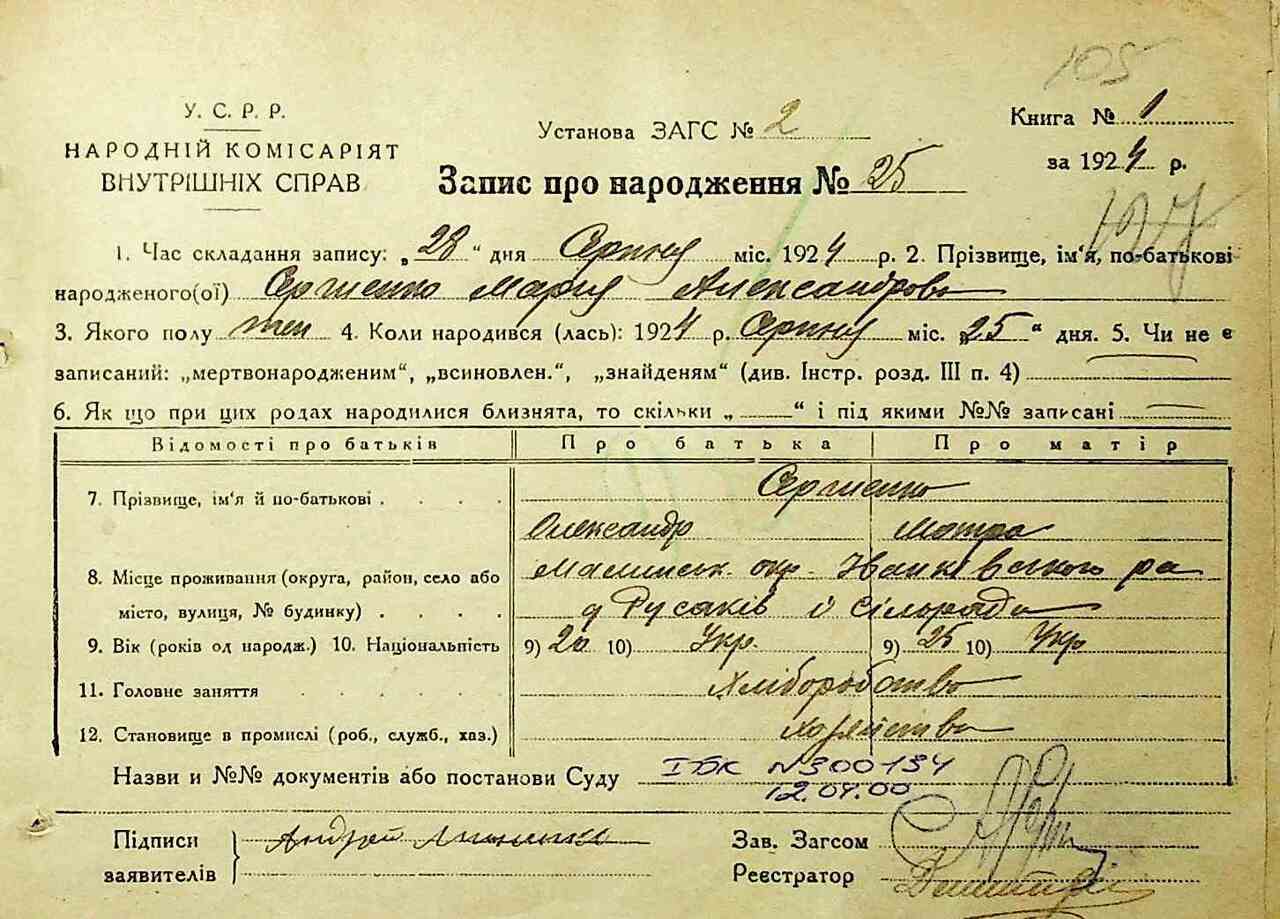 105
У. С. Р. Р.
НАРОДНІЙ КОМІСАРІЯТ
ВНУТРІШНІХ СПРАВ
Установа ЗАГС № 2
Книга № 1
за 1924 р.
Запис про народження № 25
107
1. Час складання запису: „28“ дня Серпня міс. 1924 р. 2. Прізвище, ім'я, по-батькові
народженого(ої) Сергиенко Мария Александрова
3. Якого полу жен 4. Коли народився (лась): 1924 р. Серпня міс. „25“ дня. 5. Чи не є
записаний: „мертвонародженим“, „всиновлен.“, „знайденям“ (див. Інстр. розд. III п. 4)
6. Як що при цих родах народилися близнята, то скільки „ “ і під якими №№ записані
Відомості про батьків Про батька Про матір
7. Прізвище, ім'я й по-батькові . . . . Сергиенко
Олександр Мотра
8. Місце проживання (округа, район, село або Малинськ. окр. Іванківского ра
місто, вулиця, № будинку) . . . . д Русаків і Сільрада
9. Вік (років од народж.) 10. Національність 9) 20 10) Укр. 9) 25 10) Укр
11. Головне заняття . . . . . Хліборобство
12. Становище в промислі (роб., служб., хаз.) хозяїство
Назви и №№ документів або постанови Суду ІБК №300134
12.04.00
Підписи Андрей Зав. Загсом
заявителів Реєстратор